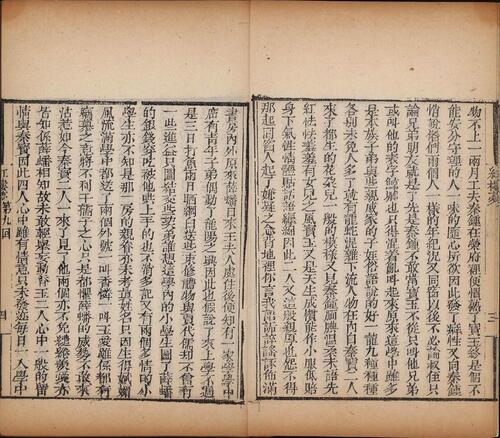 紅樓夢
三
物不上一兩月工夫秦鍾在榮府裡便慣熟了寶玉終是個不
能安分守理的人一味的隨心所欲因此發了癖性又向秦鍾
悄說俗們兩個人一樣的年紀況又同窗以後不必論叔侄只
論弟兄朋友就是了先是秦鍾不敢當寶玉不從只叫他兄弟
或叫他的表字鯨卿他也只得混着亂叫起來原來這學中雖多
是本族子弟與些親戚家的子姪俗語說的好一龍九種種種
各別未免人多了就有龍蛇混雜下流人物在內自秦寶二人
來了都生的花朶兒一般的模樣又見秦鍾腼腆溫柔未語先
紅怯怯羞羞有女兒之風寶玉又是天生成慣能作小服低賠
身下氣性情體貼話語纏綿因此二人又這般親厚也怨不得
那起同窗人起了嫌疑之念背地裡你言我語詬誶謠諑佈滿
書房內外原來薛蟠自來王夫人處住後便知有一家學學中
廣有青年子弟偶動了龍陽之興因此也假說來上學不過
是三日打魚兩日曬網白送些束修禮物與賈代儒却不曾有
一些進益只圖結交些契弟誰想這學內的小學生圖了薛蟠
的銀錢穿吃被他哄上手了也不消多記又有兩個多情的小
學生亦不知是那一房的親眷亦未考真姓名只因生得嫵媚
風流滿學中都送了兩個外號一叫香憐一叫玉愛雖都有
窺慕之意將不利于孺子之心只是都懼薛蟠的威勢不敢來
沾惹如今秦寶二人一來了見了他兩個亦不免繾綣羨愛亦
皆知係薛蟠相知故未敢輕舉妄動香玉二人心中一般的留
情與秦寶因此四人心中雖有情意只未發迹每日一入學中
紅樓夢第九回
四